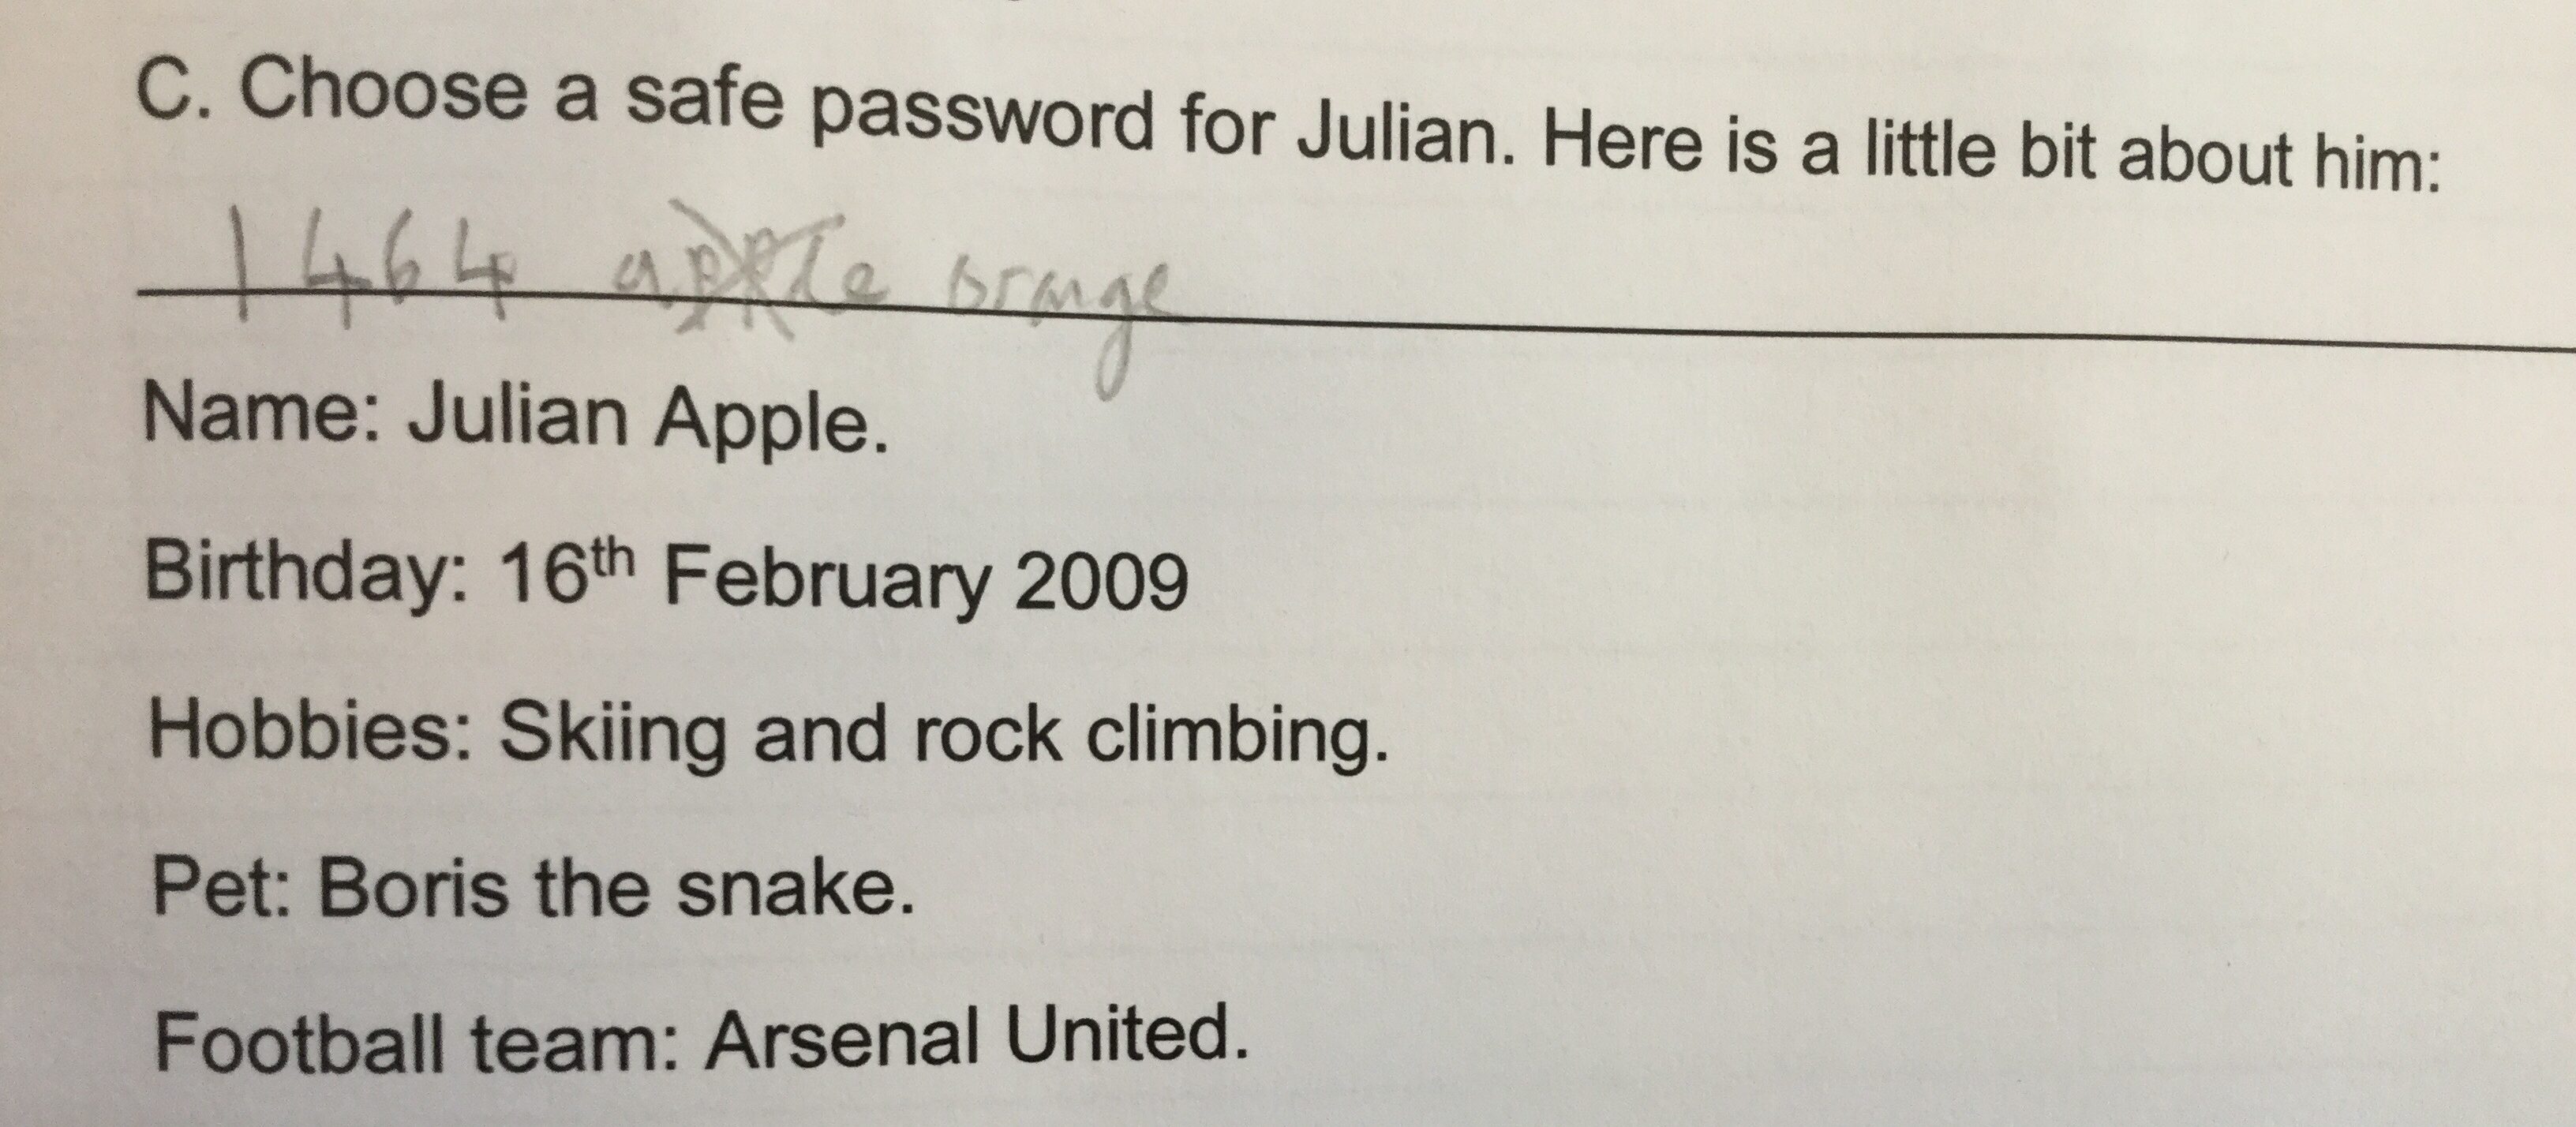 C. Choose a safe password for Julian. Here is a little bit about him:
1464 apple orange
Name: Julian Apple.
Birthday: 16th February 2009
Hobbies: Skiing and rock climbing.
Pet: Boris the snake.
Football team: Arsenal United.